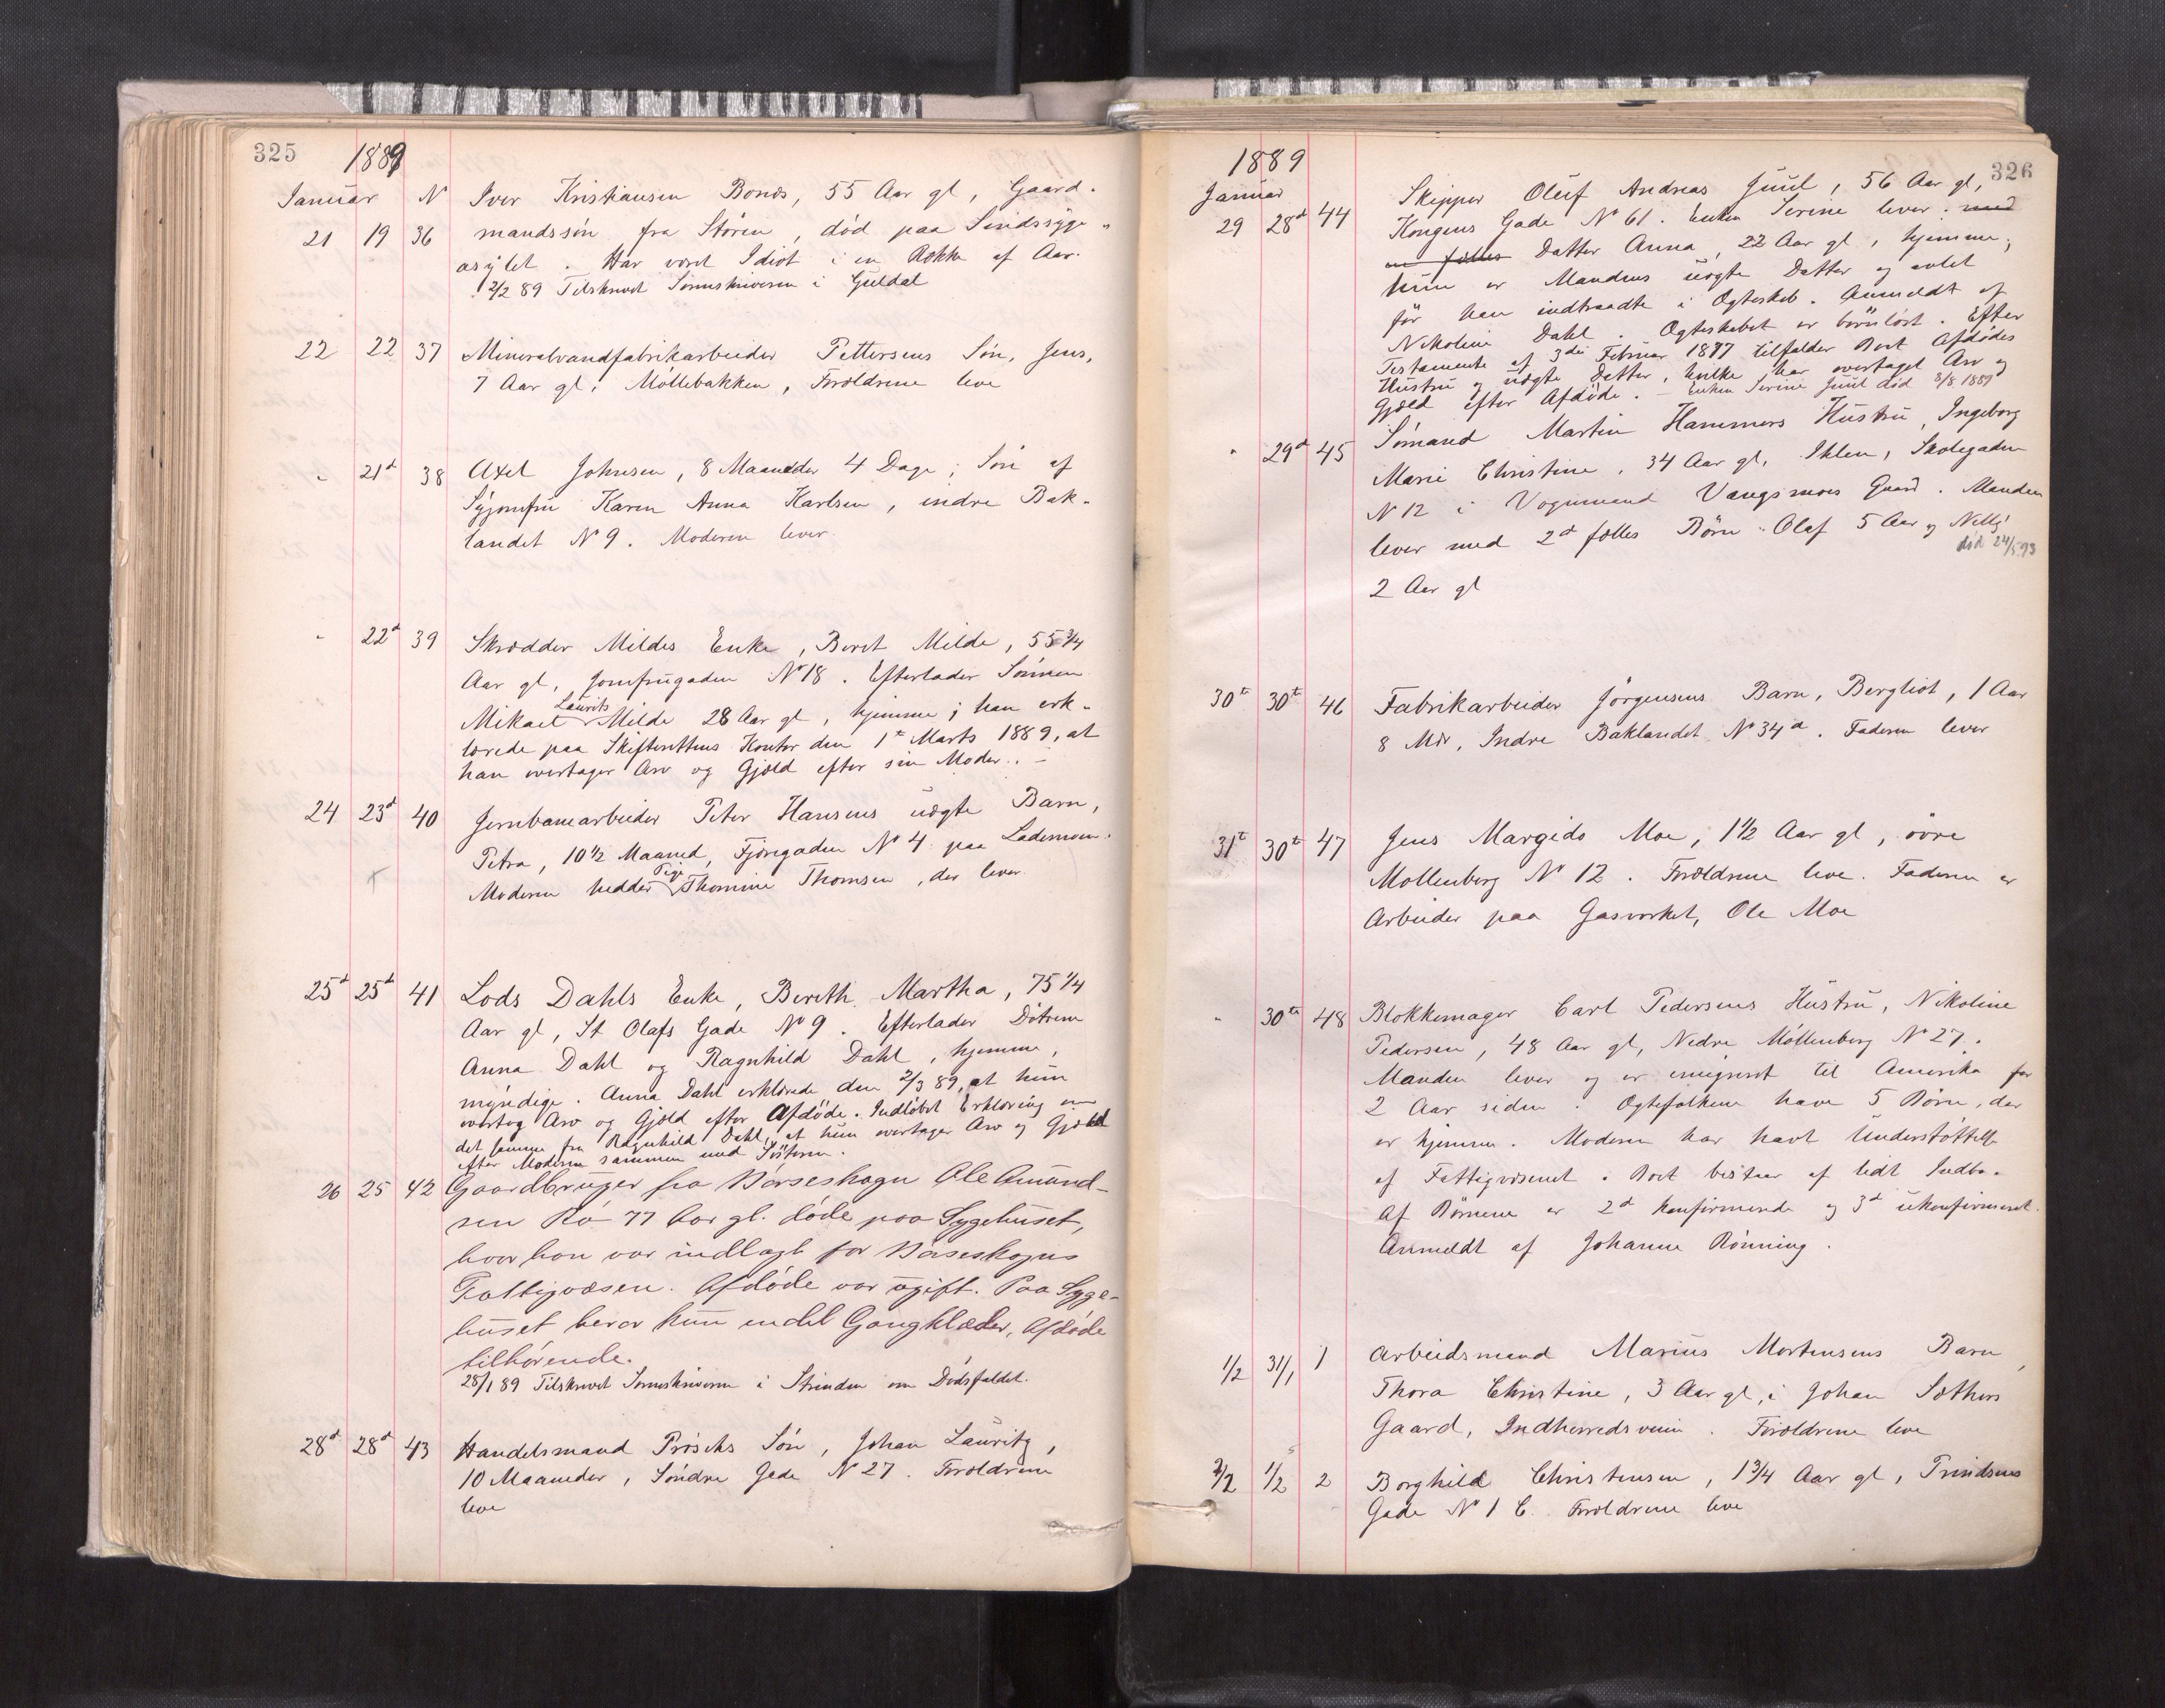 325
1889
Januar N Iver Kristiansen Bonds, 55 Aar gl, Gaard-
21 19 36 mandssön fra Stören, död paa Sindssyge-
asylet. Har været Idiot i en Række af Aar.
2/2 89 Tilskrevet Sorenskriveren i Guldal
22 22 37 Mineralvandfabrikarbeider Pettersens Sön, Jens,
7 Aar gl, Möllebakken, Forældrene leve
" 21d 38 Axel Johnsen, 8 Maaneder 4 Dage, Sön af
Syjomfru Karen Anna Karlsen, indre Bak-
landet N 9. Moderen lever.
" 22d 39 Skrædder Mildes Enke, Beret Milde, 55 3/4
Aar gl, Jomfrugaden No 18. Efterlader Sönnen
Mikael Laurits Milde 28 Aar gl, hjemme; han erk-
lærede paa Skifterettens Kontor den 1ste Marts 1889, at
han overtager Arv og Gjæld efter sin Moder. —
24 23d 40 Jernbanearbeider Peter Hansens uægte Barn,
Petra, 10 1/2 Maaned, Fjæregaden No 4 paa Lademoen.
Moderen hedder Pige Thomine Thomsen, der lever.
25d 25d 41 Lods Dahls Enke, Bereth Martha, 75 1/4
Aar gl, St Olafs Gade No 9. Efterlader Dötrene
Anna Dahl og Ragnhild Dahl, hjemme,
myndige. Anna Dahl erklærede den 2/3 89, at hun
overtog Arv og Gjæld efter Afdöde. Indlöbet Erklæring om
det samme fra Ragnhild Dahl, at hun overtager Arv og Gjæld
efter Moderen sammen med Sösteren.
26 25 42 Gaardbruger fra Börseskogn Ole Amund-
sen Rö 77 Aar gl. döde paa Sygehuset,
hvor han var indlagt for Börseskogns
Fattigvæsen. Afdöde var ugift. Paa Syge-
huset beror kun endel Gangklæder, Afdöde
tilhörende.
28/1 89 Tilskrevet Sorenskriveren i Strinden om Dödsfaldet.
28d 28d 43 Handelsmand Pröschs Sön, Johan Lauritz,
10 Maaneder, Söndre Gade N 27. Forældrene
leve
326
1889
Januar Skipper Oluf Andreas Juul, 56 Aar gl,
29 28d 44 Kongens Gade No 61. Enken Serine lever. med
en fælles Datter Anna, 22 Aar gl, hjemme;
hun er Mandens uægte Datter og avlet
för han indtraadte i Ægteskab. Anmeldt af
Nikoline Dahl. Ægteskabet er barnlöst. Efter
Testamente af 3die Februar 1877 tilfalder Boet Afdödes
Hustru og uægte Datter, hvilke har overtaget Arv og
Gjæld efter Afdöde. — Enken Serine Juul död 8/8 1889
" 29d 45 Sömand Martin Hammers Hustru, Ingeborg
Marie Christine, 34 Aar gl, Ihlen, Skolegaden
N 12 i Vognmand Vangsmoes Gaard. Manden
lever med 2d fælles Börn: Olaf 5 Aar og Nelly
död 24/5 93
2 Aar gl
30te 30te 46 Fabrikarbeider Jörgensens Barn, Bergliot, 1 Aar
8 Mdr, Indre Baklandet No 34a. Faderen lever
31te 30te 47 Jens Margido Moe, 1 1/2 Aar gl, övre
Mollenberg No 12. Forældrene leve. Faderen er
Arbeider paa Gasværket, Ole Moe
" 30te 48 Blokkemager Carl Pedersens Hustru, Nikoline
Pedersen, 48 Aar gl, Nedre Möllenberg No 27.
Manden lever og er emigreret til Amerika for
2 Aar siden. Ægtefolkene have 5 Börn, der
er hjemme. Moderen har havt Understöttelse
af Fattigvæsenet. Boet bestaar af lidt Indbo.
Af Börnene er 2d konfirmerede og 3d ukonfirmeret.
Anmeldt af Johanne Rönning.
1/2 31/1 1 Arbeidsmand Marius Mortensens Barn,
Thora Christine, 3 Aar gl, i Johan Sæthers
Gaard, Indherredsveien. Forældrene leve
2/2 1/2 2 Borghild Christensen, 1 3/4 Aar gl, Trindsens
Gade No 1 C. Forældrene leve